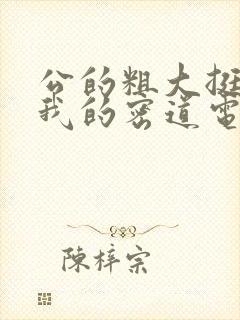 公的粗大挺
我的密道電
陳梓宗